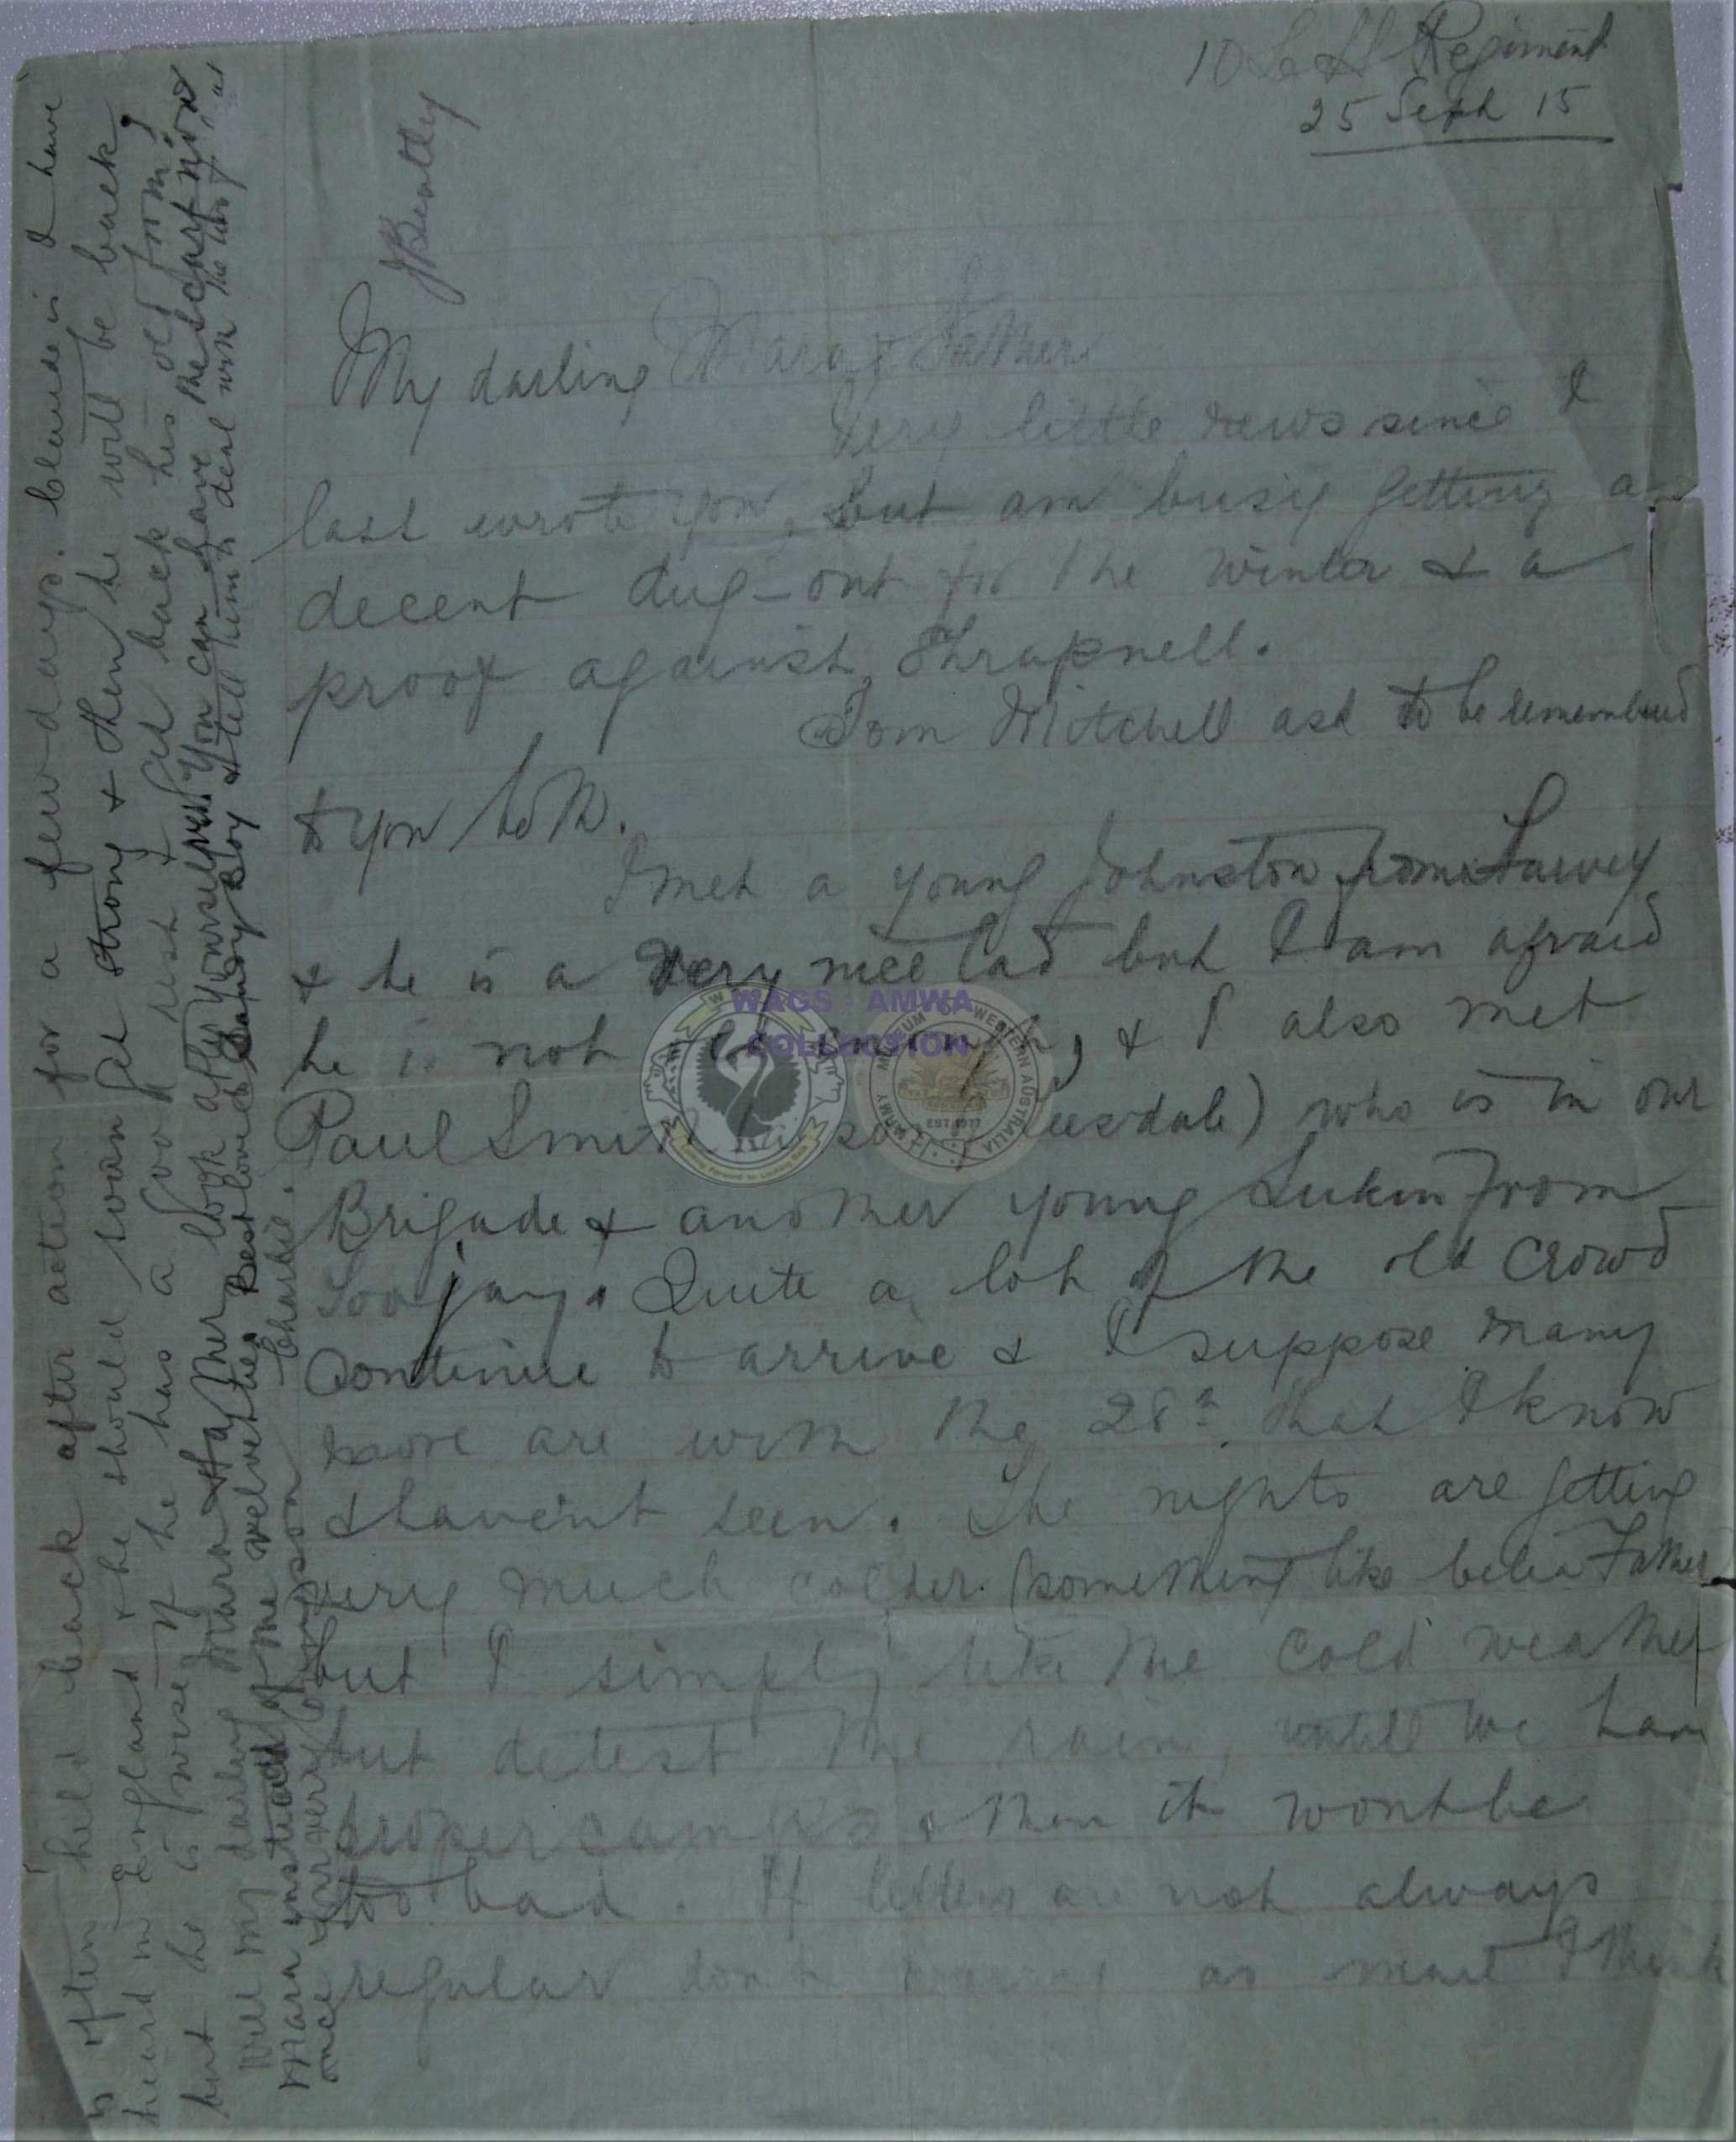 10 L H Regiment
25 Sept 15
JBentley
My darling Mara & Father
Very little news since I
last wrote you, but am busy getting a
decent dug-out for the winter & a
proof against Shrapnell.
Tom Mitchell ask to be remembered
to you both.
I met a young Johnston from Harvey
& he is a very nice lad but I am afraid
he is not enough, & I also met
Paul Smith who is in our
Brigade & another young Lukin from
Toojay. Quite a lot of the old crowd
continue to arrive & I suppose many
more are with the 28th that I know
& havent seen. The nights are getting
very much colder (something like Father
but I simply like the cold weather
but detest the rain, untill we have
proper camps & then it wont be
too bad. If letters are not always
regular dont worry as mail I think
is often held back after action for a few days. Claude is I have
heard in England & he should soon get strong & then he will be back
but he is wise if he has a good rest & get back his old form,
Will my darling Mara & Father look after yourselves. You can have the scarf now
Mara instead of the velveteen. Best love to Sandy Boy & tell him to deal with the as
once
Charlie.
WAGS - AMWA
COLLECTION
ARMY MUSEUM OF WESTERN AUSTRALIA
EST 1977